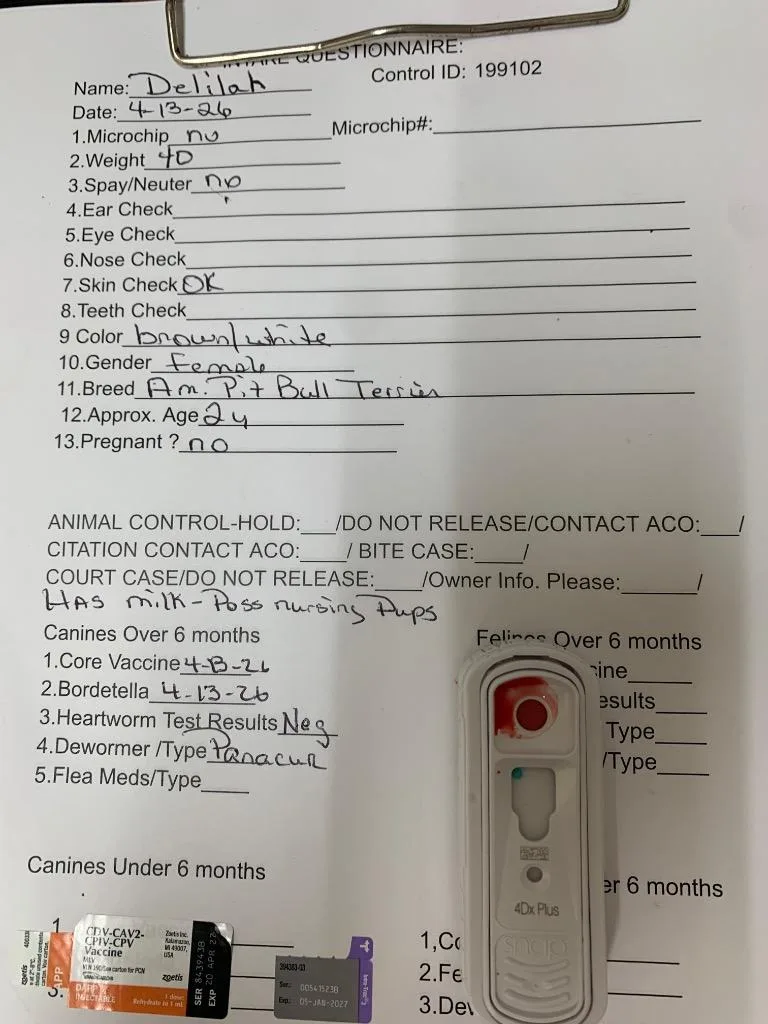 INTAKE QUESTIONNAIRE:
Name: Delilah Control ID: 199102
Date: 4-13-26
1.Microchip no Microchip#:
2.Weight 40
3.Spay/Neuter no
4.Ear Check
5.Eye Check
6.Nose Check
7.Skin Check OK
8.Teeth Check
9 Color brown/white
10.Gender female
11.Breed Am. Pit Bull Terrier
12.Approx. Age 2y
13.Pregnant ? no
ANIMAL CONTROL-HOLD:___/DO NOT RELEASE/CONTACT ACO:___/
CITATION CONTACT ACO:____/ BITE CASE:____/
COURT CASE/DO NOT RELEASE:____/Owner Info. Please:______/
HAS milk - Poss nursing Pups
Canines Over 6 months
1.Core Vaccine 4-13-26
2.Bordetella 4-13-26
3.Heartworm Test Results Neg
4.Dewormer /Type Panacur
5.Flea Meds/Type____
Felines Over 6 months
cine
esults
Type
/Type
Canines Under 6 months
er 6 months
1.
3.
1,Co
2.Fe
3.Dew
4Dx Plus
snap
CDV-CAV2-
CPIV-CPV
Vaccine
MLV
Zoetis Inc.
Kalamazoo,
MI 49007,
USA
zoetis
DAPP
INJECTABLE
1 dose:
Rehydrate to 1 mL
SER 8439438
EXP 20 APR 27
394383-03
Ser.: 00541523B
Exp.: 05-JAN-2027